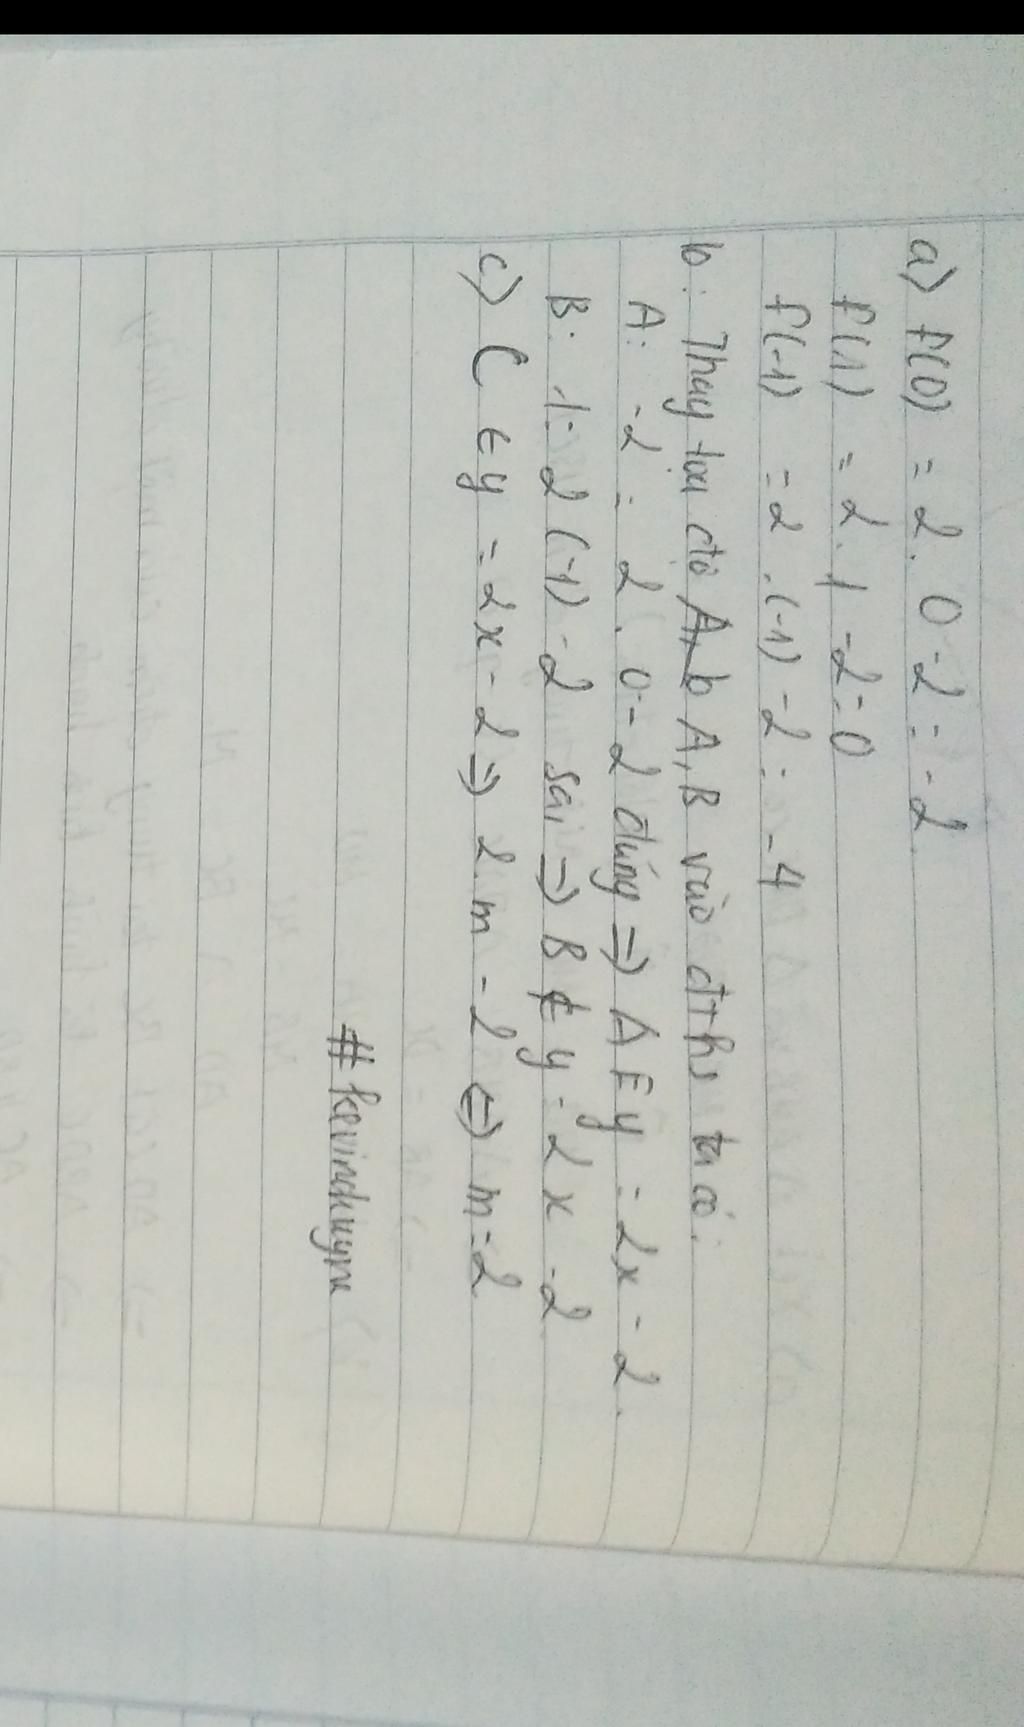 a) f(0) = 2.0-2=-2
f(1) = 2.1-2=0
f(-1) = 2.(-1)-2=-4
b: Thay tọa độ A, B vào đths ta có:
A: -2 = 2.0-2 đúng => A ∈ y = 2x-2.
B: 1=2(-1)-2 sai => B ∉ y=2x-2
c) C ∈ y = 2x-2 => 2.m-2 <=> m=2